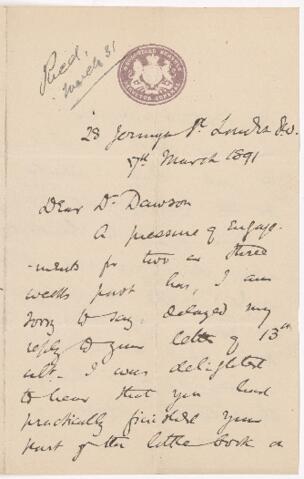 Recd.
March 31
28 Jermyn St. London S.W.
7th March 1891
Dear Dr. Dawson
A pressure of engage-
-ments for two or three
weeks past has, I am
sorry to say, delayed my
reply to your letter of 13th
ult. I was delighted
to hear that you had
practically finished your
part of the little book on